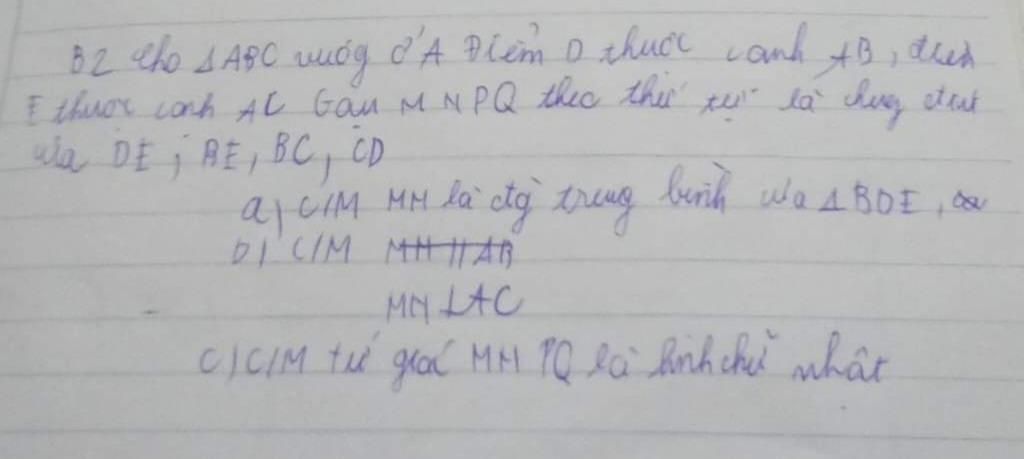 B2 cho ΔABC vuôg ở A Điểm D thuộc cạnh AB, điểm
E thuộc cạnh AC Gọi M N P Q theo thứ tự là trung điểm
của DE, BE, BC, CD
a) C/M MN là đg trung bình của ΔBDE
b) C/M MN // AB
MN ⊥ AC
c) C/M tứ giác MNPQ là hình chữ nhật